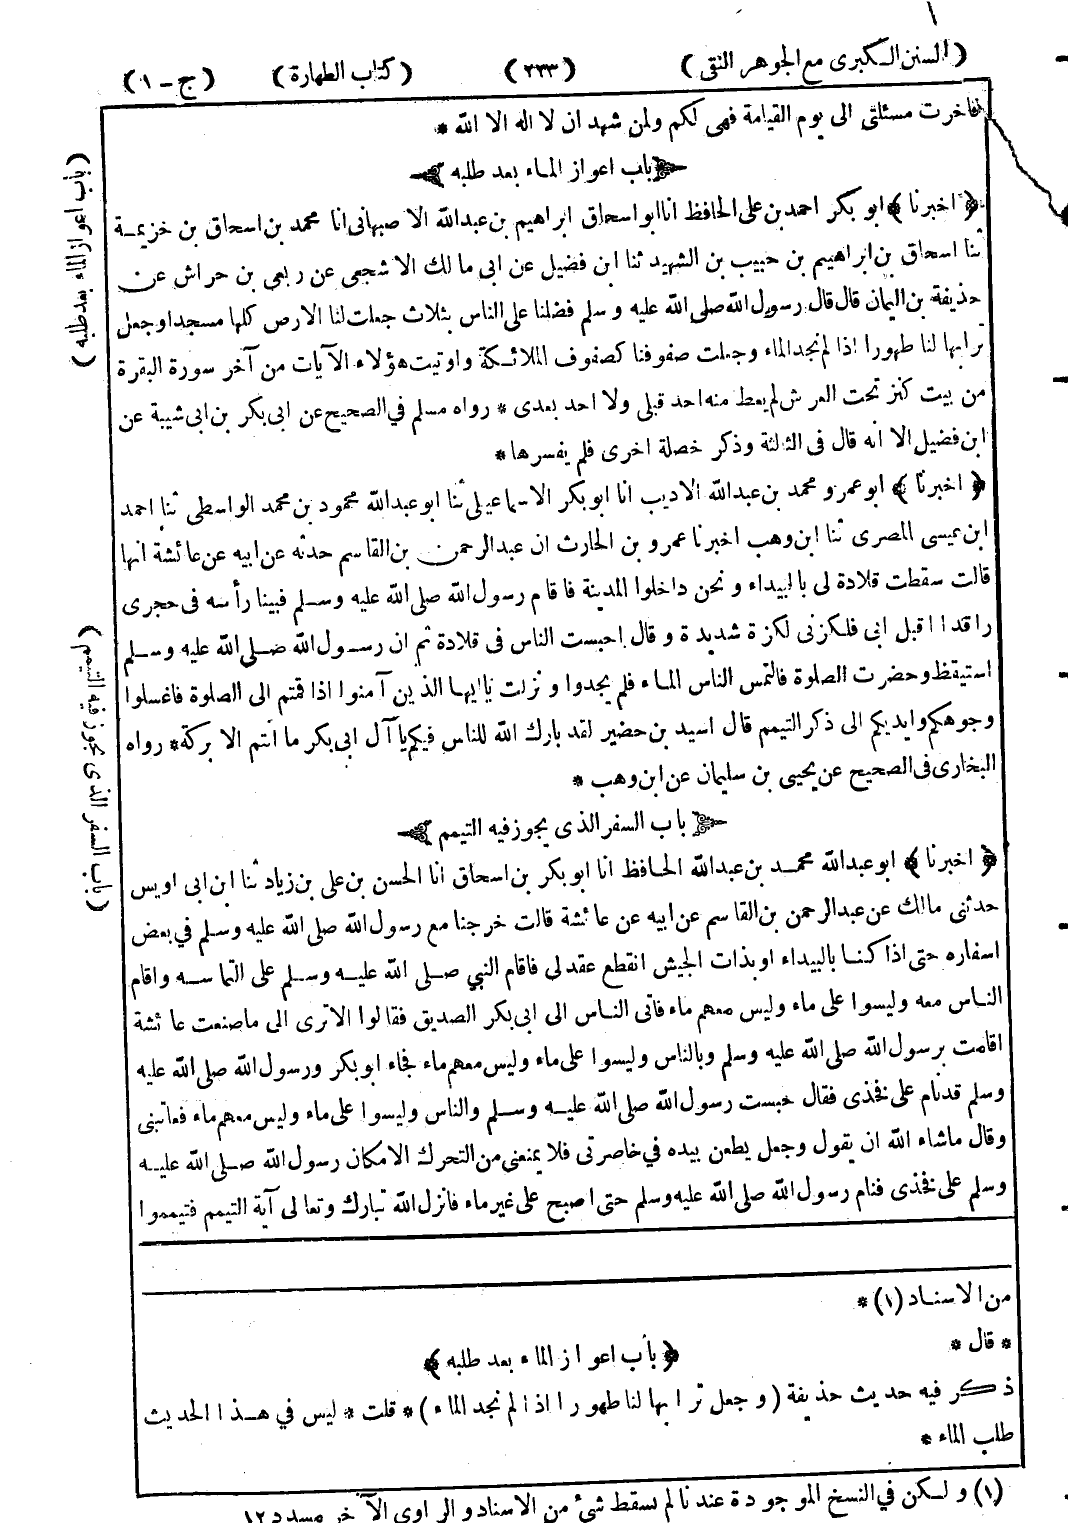 (السنن الكبرى مع الجوهر النقى) (٢٣٣) (كتاب الطهارة) (ج-١)
فاخرت مسئلتى الى يوم القيامة فهى لكم ولمن شهد ان لا اله الا الله *
باب اعواز الماء بعد طلبه
﴿ اخبرنا ﴾ ابو بكر احمد بن على الحافظ انا ابو اسحاق ابراهيم بن عبد الله الاصبهانى انا محمد بن اسحاق بن خزيمة
ثنا اسحاق بن ابراهيم بن حبيب بن الشهيد ثنا ابن فضيل عن ابى مالك الاشجعى عن ربعى بن حراش عن
حذيفة بن اليمان قال قال رسول الله صلى الله عليه وسلم فضلنا على الناس بثلاث جعلت لنا الارض كلها مسجدا وجعل
ترابها لنا طهورا اذا لم نجد الماء وجعلت صفوفنا كصفوف الملائكة واوتيت هؤلاء الآيات من آخر سورة البقرة
من بيت كنز تحت العرش لم يعط منه احد قبلى ولا احد بعدى * رواه مسلم في الصحيح عن ابى بكر بن ابى شيبة عن
ابن فضيل الا انه قال فى الثالثة وذكر خصلة اخرى فلم يفسرها *
﴿ اخبرنا ﴾ ابو عمرو محمد بن عبد الله الاديب انا ابو بكر الاسماعيلى ثنا ابو عبد الله محمود بن محمد الواسطى ثنا احمد
ابن عيسى المصرى ثنا ابن وهب اخبرنا عمرو بن الحارث ان عبد الرحمن بن القاسم حدثه عن ابيه عن عائشة انها
قالت سقطت قلادة لى بالبيداء و نحن داخلوا المدينة فاقام رسول الله صلى الله عليه وسلم فبينا رأسه فى حجرى
راقدا اقبل ابى فلكزنى لكزة شديدة و قال احبست الناس فى قلادة ثم ان رسول الله صلى الله عليه وسلم
استيقظ وحضرت الصلوة فالتمس الناس الماء فلم يجدوا و نزلت يا ايها الذين آمنوا اذا قمتم الى الصلوة فاغسلوا
وجوهكم وايديكم الى ذكر التيمم قال اسيد بن حضير لقد بارك الله للناس فيكم يا آل ابى بكر ما انتم الا بركة * رواه
البخارى فى الصحيح عن يحيى بن سليمان عن ابن وهب *
باب السفر الذى يجوز فيه التيمم
﴿ اخبرنا ﴾ ابو عبد الله محمد بن عبد الله الحافظ انا ابو بكر بن اسحاق انا الحسن بن على بن زياد ثنا ابن ابى اويس
حدثنى مالك عن عبد الرحمن بن القاسم عن ابيه عن عائشة قالت خرجنا مع رسول الله صلى الله عليه وسلم في بعض
اسفاره حتى اذا كنا بالبيداء او بذات الجيش انقطع عقد لى فاقام النبي صلى الله عليه وسلم على التماسه واقام
الناس معه وليسوا على ماء وليس معهم ماء فاتى الناس الى ابى بكر الصديق فقالوا الا ترى الى ما صنعت عائشة
اقامت برسول الله صلى الله عليه وسلم وبالناس وليسوا على ماء وليس معهم ماء فجاء ابو بكر ورسول الله صلى الله عليه
وسلم قد نام على فخذى فقال حبست رسول الله صلى الله عليه وسلم والناس وليسوا على ماء وليس معهم ماء فعاتبنى
وقال ماشاء الله ان يقول وجعل يطعن بيده في خاصرتى فلا يمنعنى من التحرك الا مكان رسول الله صلى الله عليه
وسلم على فخذى فنام رسول الله صلى الله عليه وسلم حتى اصبح على غير ماء فانزل الله تبارك وتعالى آية التيمم فتيمموا
من الاسناد (١) *
* قال *
﴿ باب اعواز الماء بعد طلبه ﴾
ذكر فيه حديث حذيفة (وجعل ترابها لنا طهورا اذا لم نجد الماء) * قلت * ليس في هذا الحديث
طلب الماء *
(١) ولكن في النسخ الموجودة عندنا لم يسقط شئ من الاسناد والراوى الآخر مسدد ١٢
(باب اعواز الماء بعد طلبه)
(باب السفر الذى يجوز فيه التيمم)